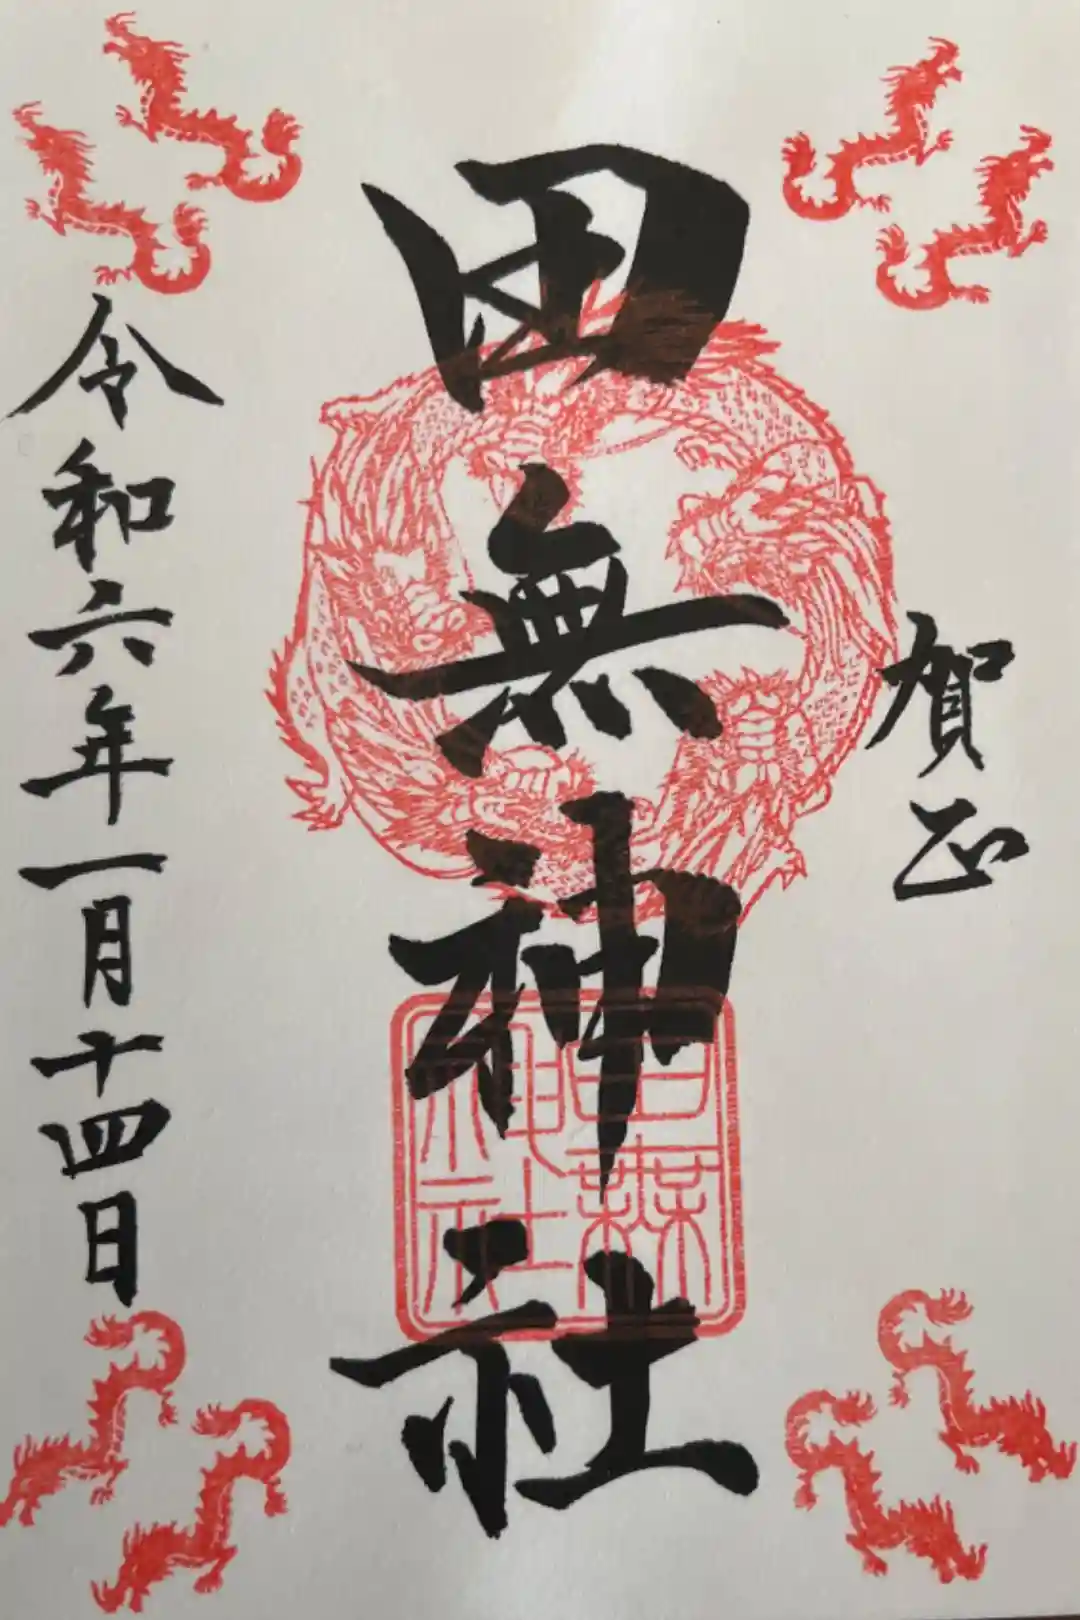 賀正
田無神社
田無神社
令和六年一月十四日